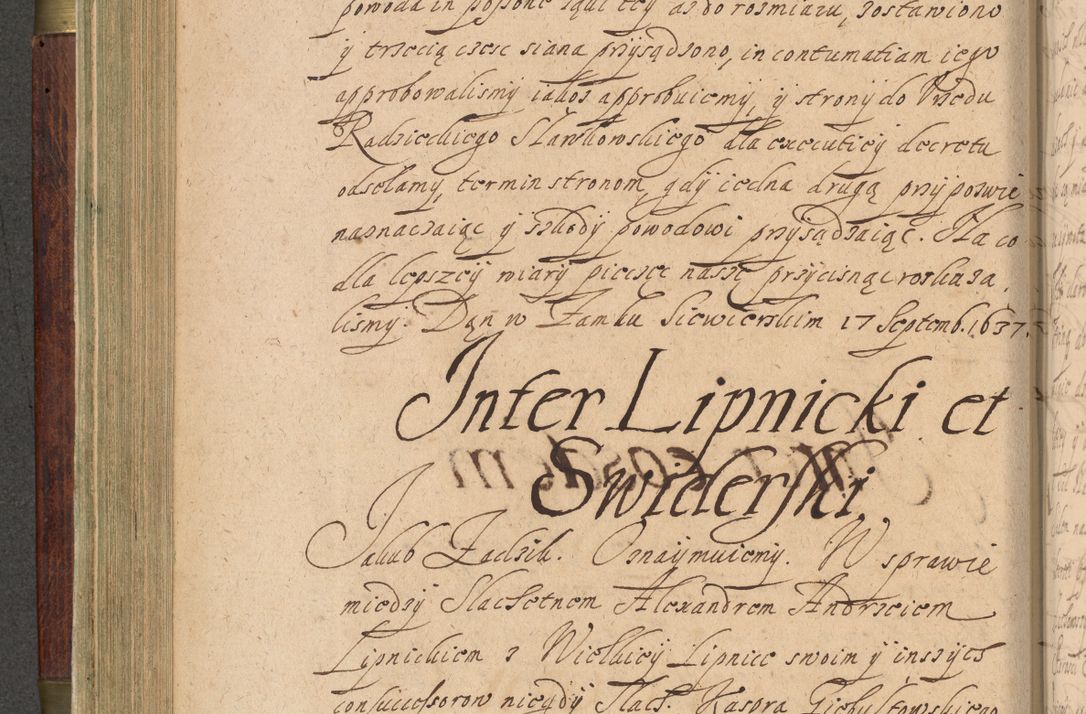 powoda in possone szui tey as do rosmiaru, zostawiono
y trzecią czesc siana przysądzono, in contumatiam iego
approbowalismy iakoż approbuiemy, y strony do Vrzedu
Radzieckiego Sławkowskiego dla executiey decretu
odsełamy, termin stronom, gdy iedna drugą przypozwie
naznaczaiąc y szkody powodowi przysądzaiąc. Na co
dla lepszey wiary pieczęc naszę przycisnąc roskaza
lismy. Dąn w Zamku Siewierskim 17 Septemb. 1637.
Inter Lipnicki et
Swiderski.
Jakub Zadzik. Oznaymuiemy. W sprawie
miedzy Slachetnem Alexandrem Andrzeiem
Lipnickiem z Wielkiey Lipnice swoim y inszych
consuccessorow niegdy Slach. Kaspra